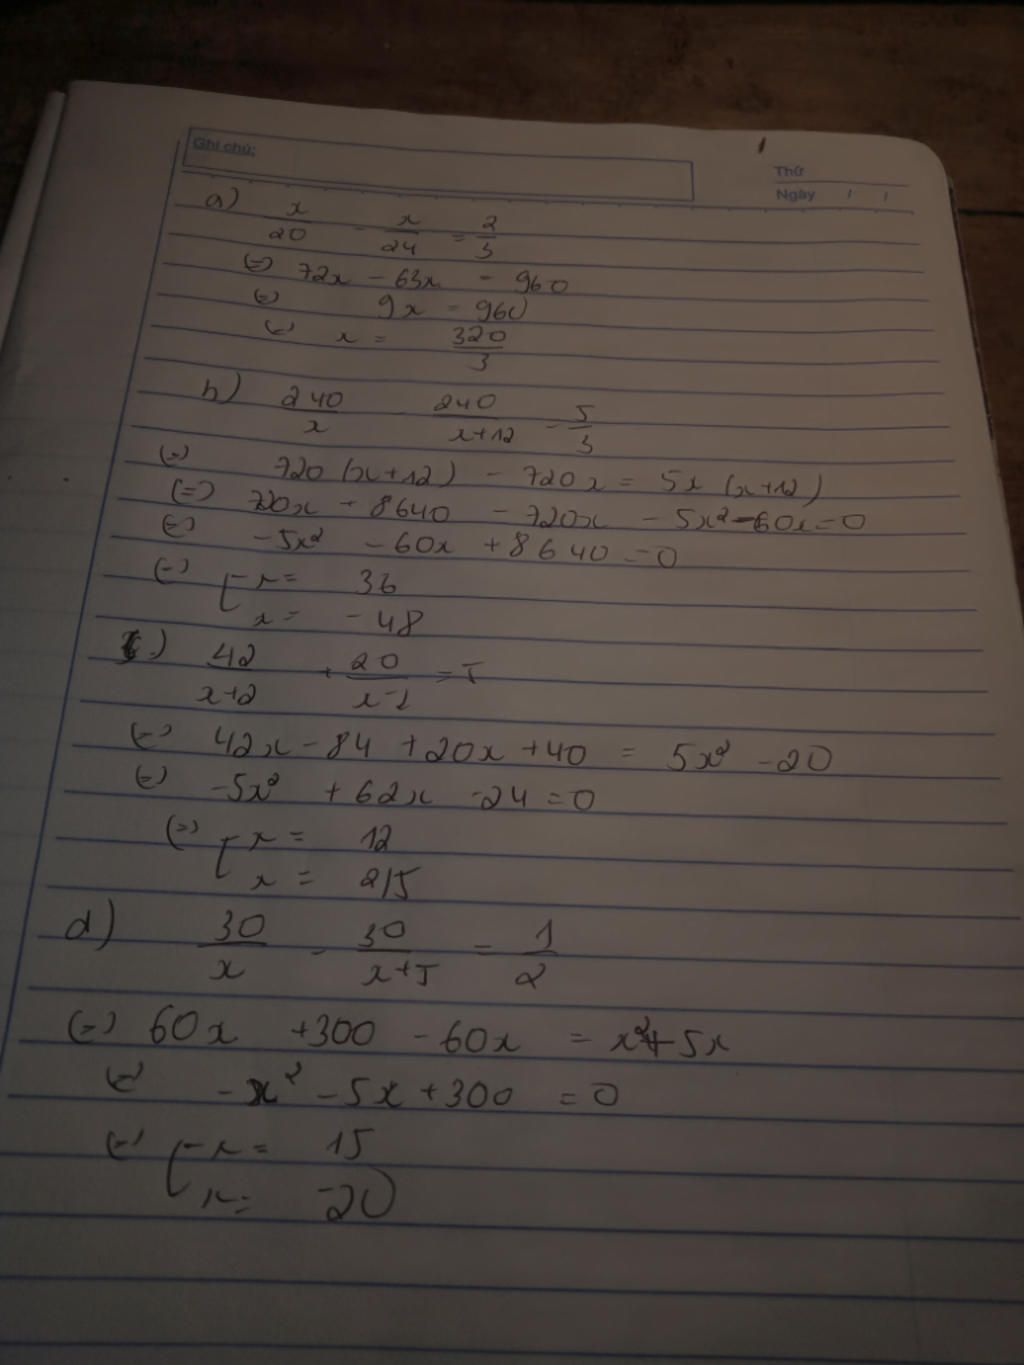 Ghi chú:
Thứ
Ngày / /
a) x/20 - x/24 = 2/3
(=) 72x - 63x = 960
(=) 9x = 960
(=) x = 320/3
b) 240/x - 240/x+12 = 5/3
(=) 720(x+12) - 720x = 5x(x+12)
(=) 720x + 8640 - 720x - 5x² - 60x = 0
(=) -5x² - 60x + 8640 = 0
(=) [ x = 36
x = -48
c.) 42/x+2 + 20/x-2 = 5
(=) 42x - 84 + 20x + 40 = 5x² - 20
(=) -5x² + 62x - 24 = 0
(=) [ x = 12
x = 2/5
d) 30/x - 30/x+5 = 1/2
(=) 60x + 300 - 60x = x² + 5x
(=) -x² - 5x + 300 = 0
(=) [ x = 15
x = -20